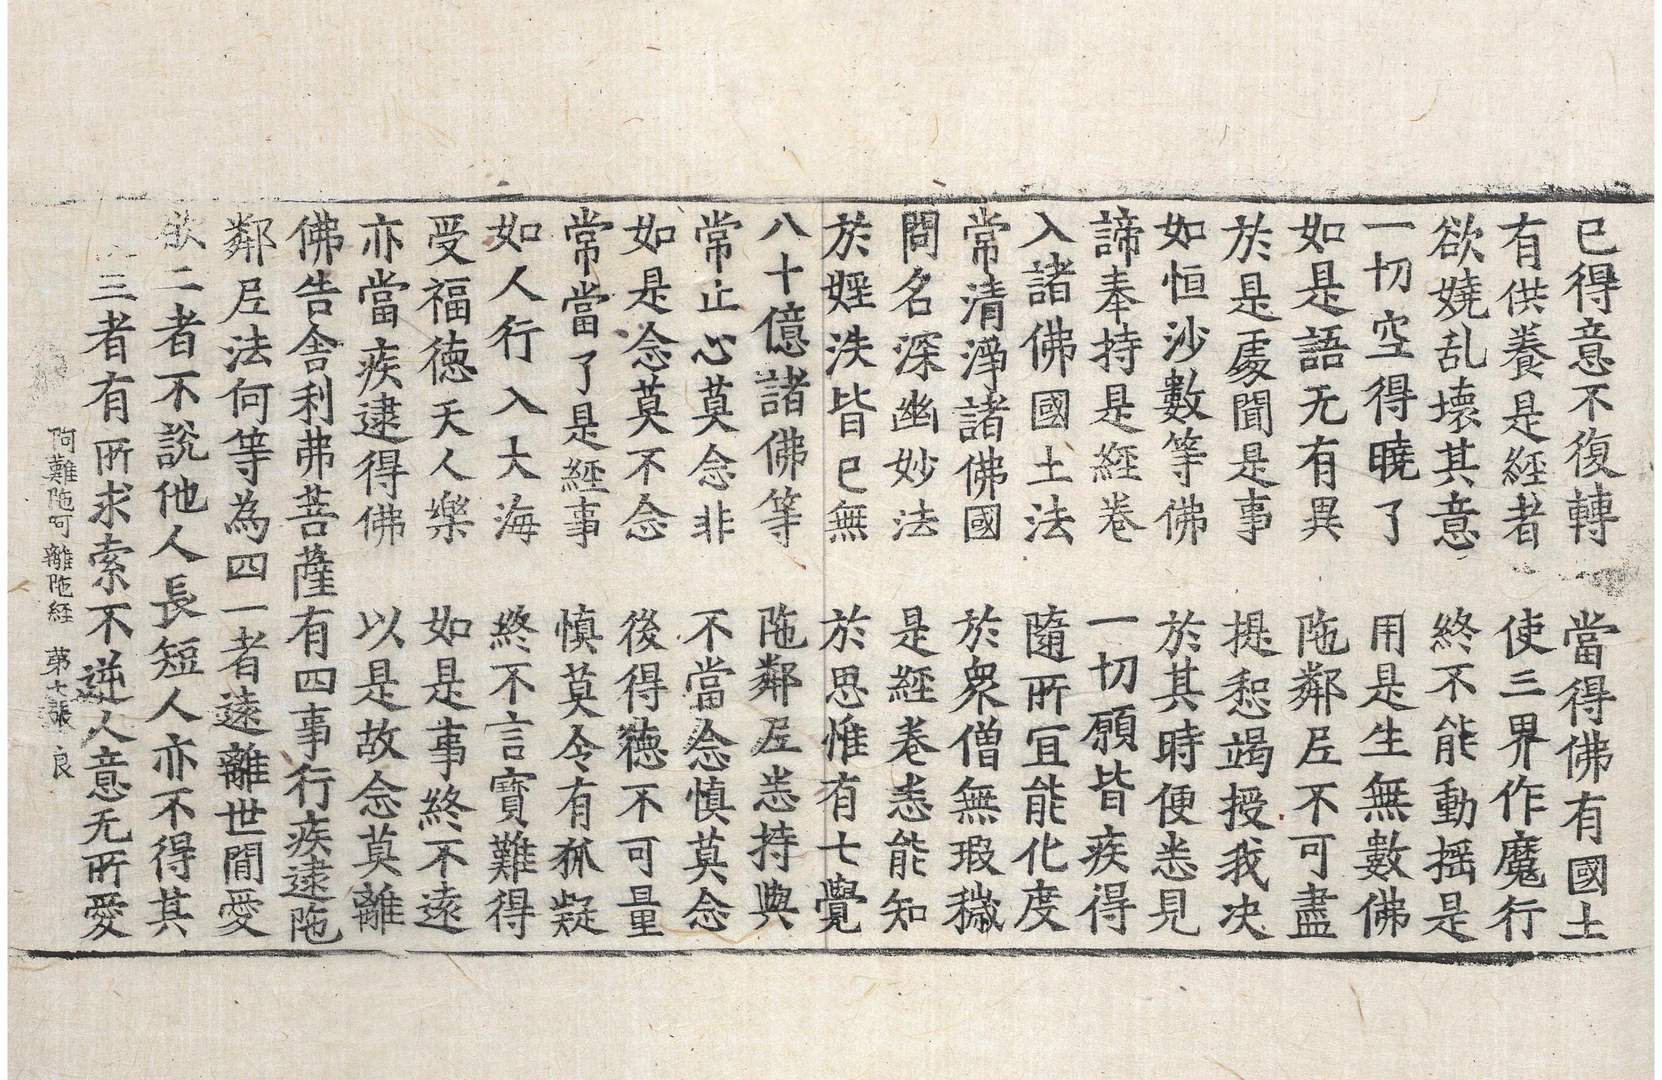 已得意不復轉　當得佛有國土
有供養是経者　使三界作魔行
欲嬈乱壞其意　終不能動揺是
一切空得曉了　用是生無數佛
如是語无有異　陁鄰𡰱不可盡
於是處聞是事　提惒竭授我决
如恒沙數等佛　於其時便悉見
諦奉持是経卷　一切願皆疾得
入諸佛國土法　隨所冝能化度
常清淨諸佛國　於衆僧無瑕穢
問名深幽妙法　是経卷悉能知
於婬泆皆已無　於思惟有七覺
八十億諸佛等　陁鄰𡰱悉持與
常止心莫念非　不當念慎莫念
如是念莫不念　後得德不可量
常當了是經事　慎莫令有狐疑
如人行入大海　終不言寳難得
受福德天人樂　如是事終不遠
亦當疾逮得佛　以是故念莫離
佛告舍利弗菩薩有四事行疾逮陁
鄰𡰱法何等為四一者遠離世間愛
欲二者不說他人長短人亦不得其
三者有所求索不逆人意无所愛
阿難陁目佉尼呵離陁経　第七張　良